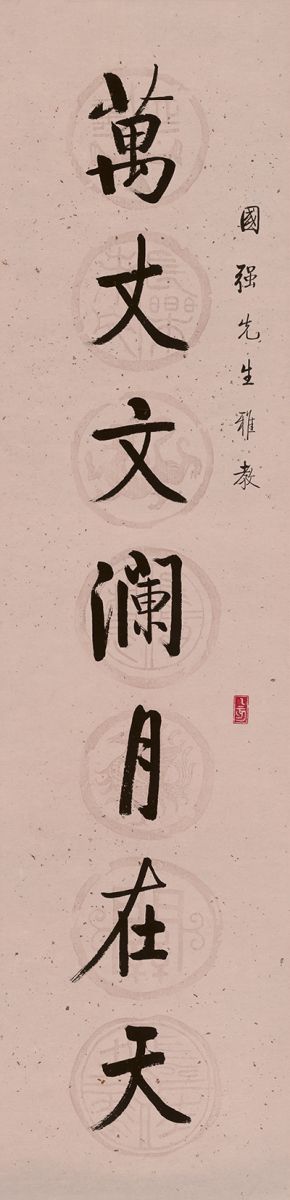 國强先生雅教
萬丈文澜月在天